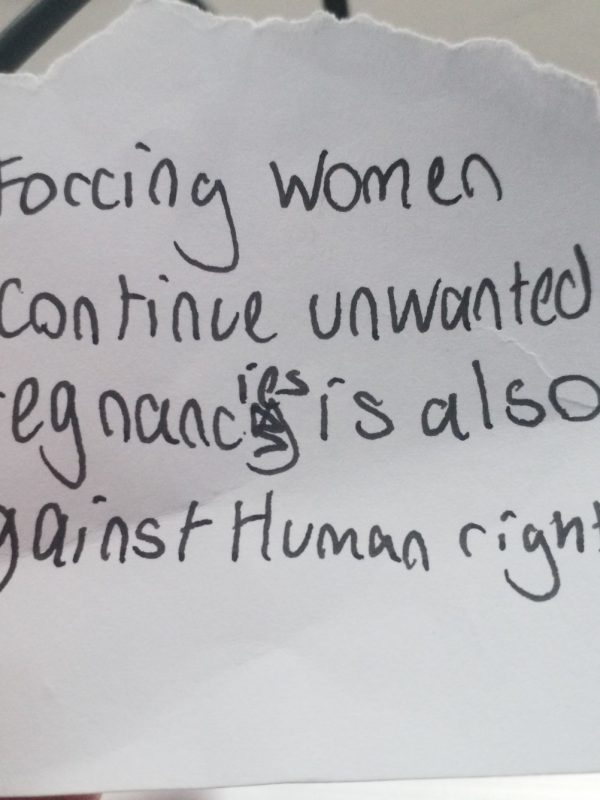 Forcing women
continue unwanted
regnancies is also
gainst Human right